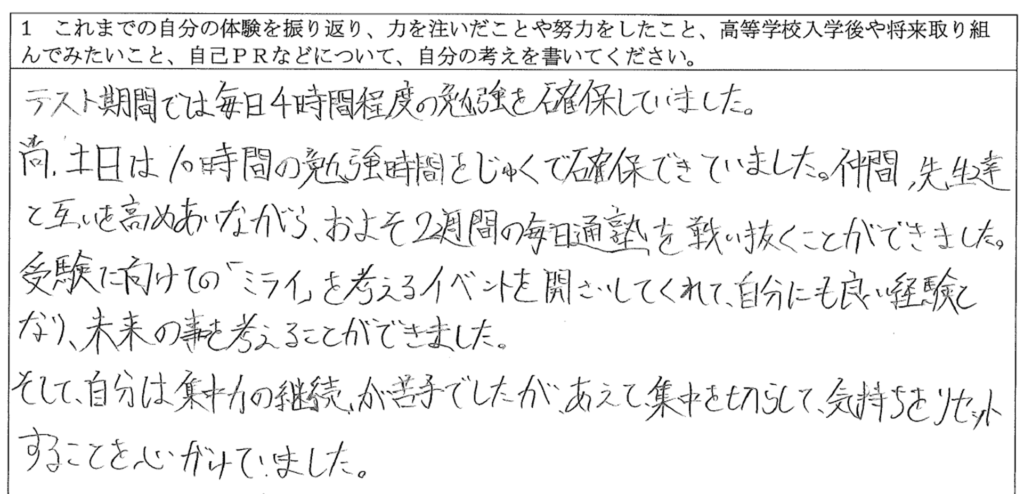 1 これまでの自分の体験を振り返り、力を注いだことや努力をしたこと、高等学校入学後や将来取り組
んでみたいこと、自己PRなどについて、自分の考えを書いてください。
テスト期間では毎日4時間程度の勉強を確保していました。
尚、土日は10時間の勉強時間をじゅくで確保できていました。仲間、先生達
と互いを高めあいながら、およそ2週間の毎日通塾を戦い抜くことができました。
受験に向けての「ミライ」を考えるイベントを開さいしてくれて、自分にも良い経験と
なり、未来の事を考えることができました。
そして、自分は集中力の継続が苦手でしたが、あえて集中を切らして、気持ちをリセット
することを心がけていました。